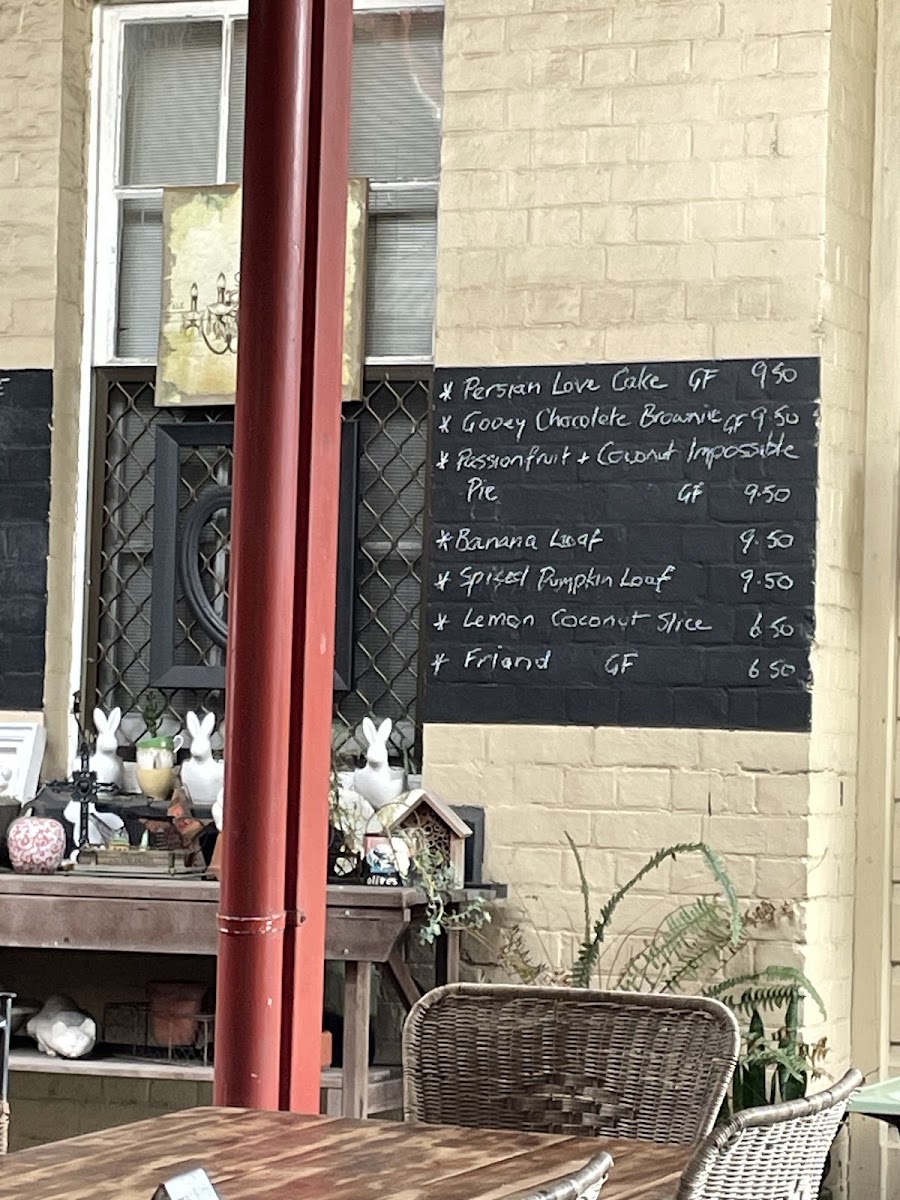 E
* Persian Love Cake GF 9.50
* Gooey Chocolate Brownie GF 9.50
* Passionfruit + Coconut Impossible
Pie GF 9.50
* Banana Loaf 9.50
* Spiced Pumpkin Loaf 9.50
* Lemon Coconut Slice 6.50
* Friand GF 6.50
olives